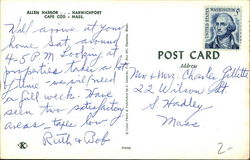 ALLEN HARBOR . . . HARWICHPORT
CAPE COD - MASS.
Will arrive at your
home Sat. evening
4-5 P.M. Looking at
properties takes a lot
of time - so will need
a full week. Have
seen two satisfactory
areas - taxes low.
Ruth & Bob
K
UNITED STATES POSTAGE
POST CARD
Address
Mr & Mrs. Charles Gillette
22 Wilson St
S Hadley
Mass
2-